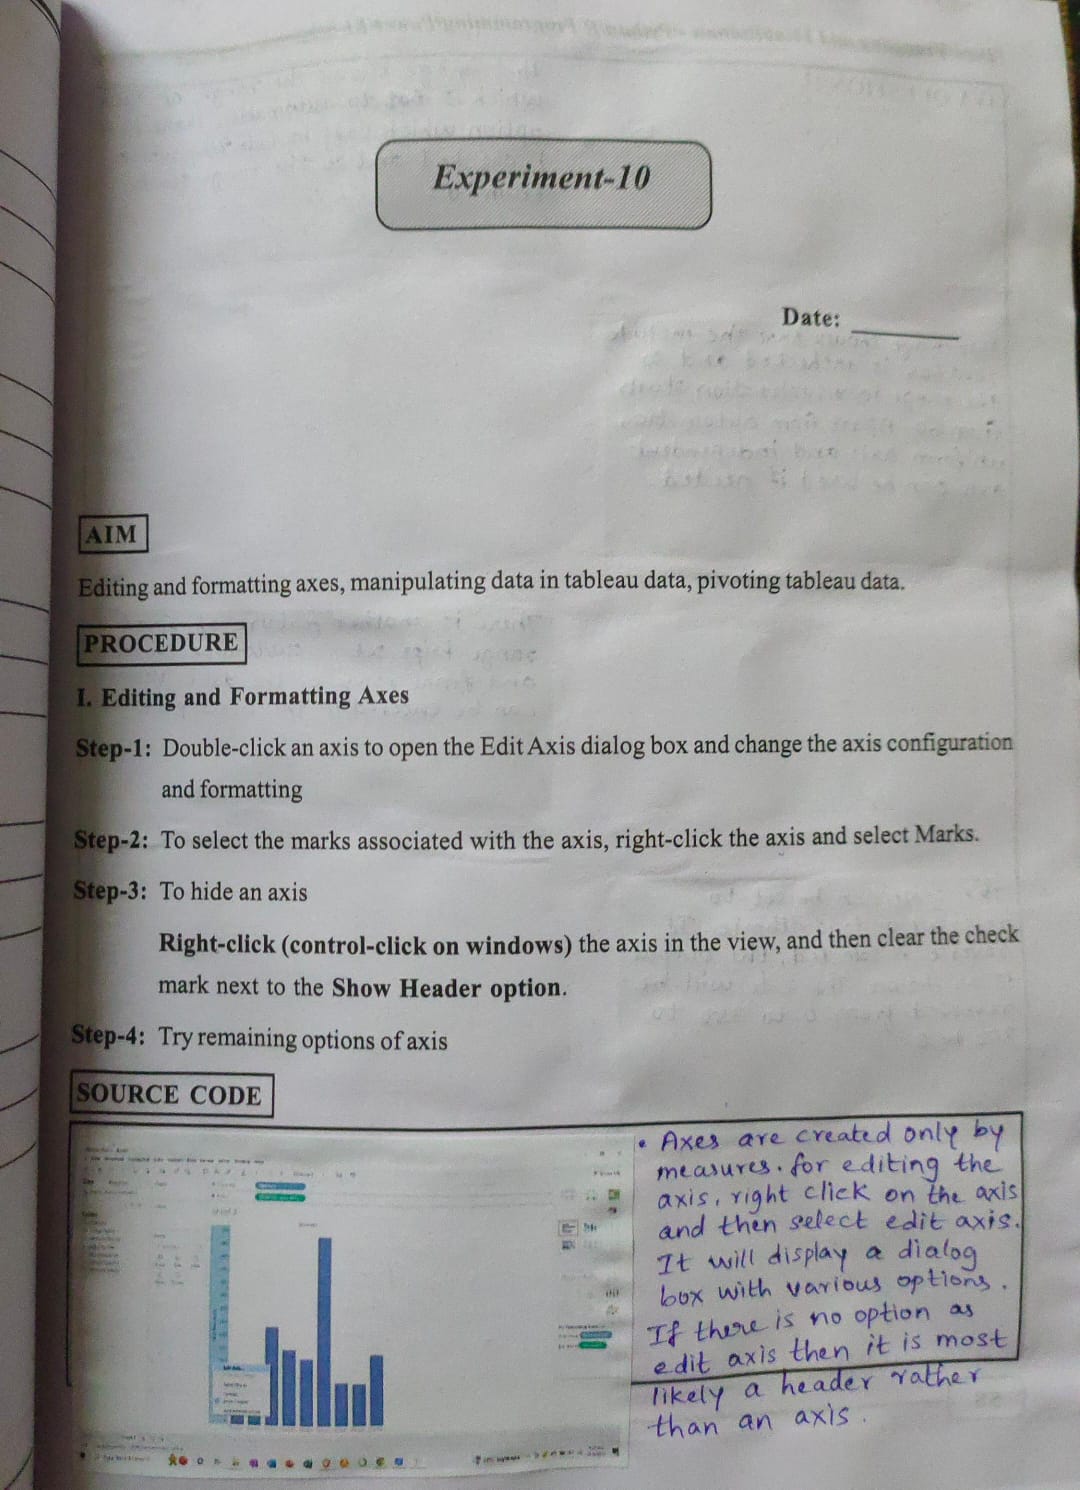 Experiment-10
Date:
AIM
Editing and formatting axes, manipulating data in tableau data, pivoting tableau data.
PROCEDURE
I. Editing and Formatting Axes
Step-1: Double-click an axis to open the Edit Axis dialog box and change the axis configuration
and formatting
Step-2: To select the marks associated with the axis, right-click the axis and select Marks.
Step-3: To hide an axis
Right-click (control-click on windows) the axis in the view, and then clear the check
mark next to the Show Header option.
Step-4: Try remaining options of axis
SOURCE CODE
• Axes are created only by
measures. for editing the
axis, right click on the axis
and then select edit axis.
It will display a dialog
box with various options.
If there is no option as
edit axis then it is most
likely a header rather
than an axis.